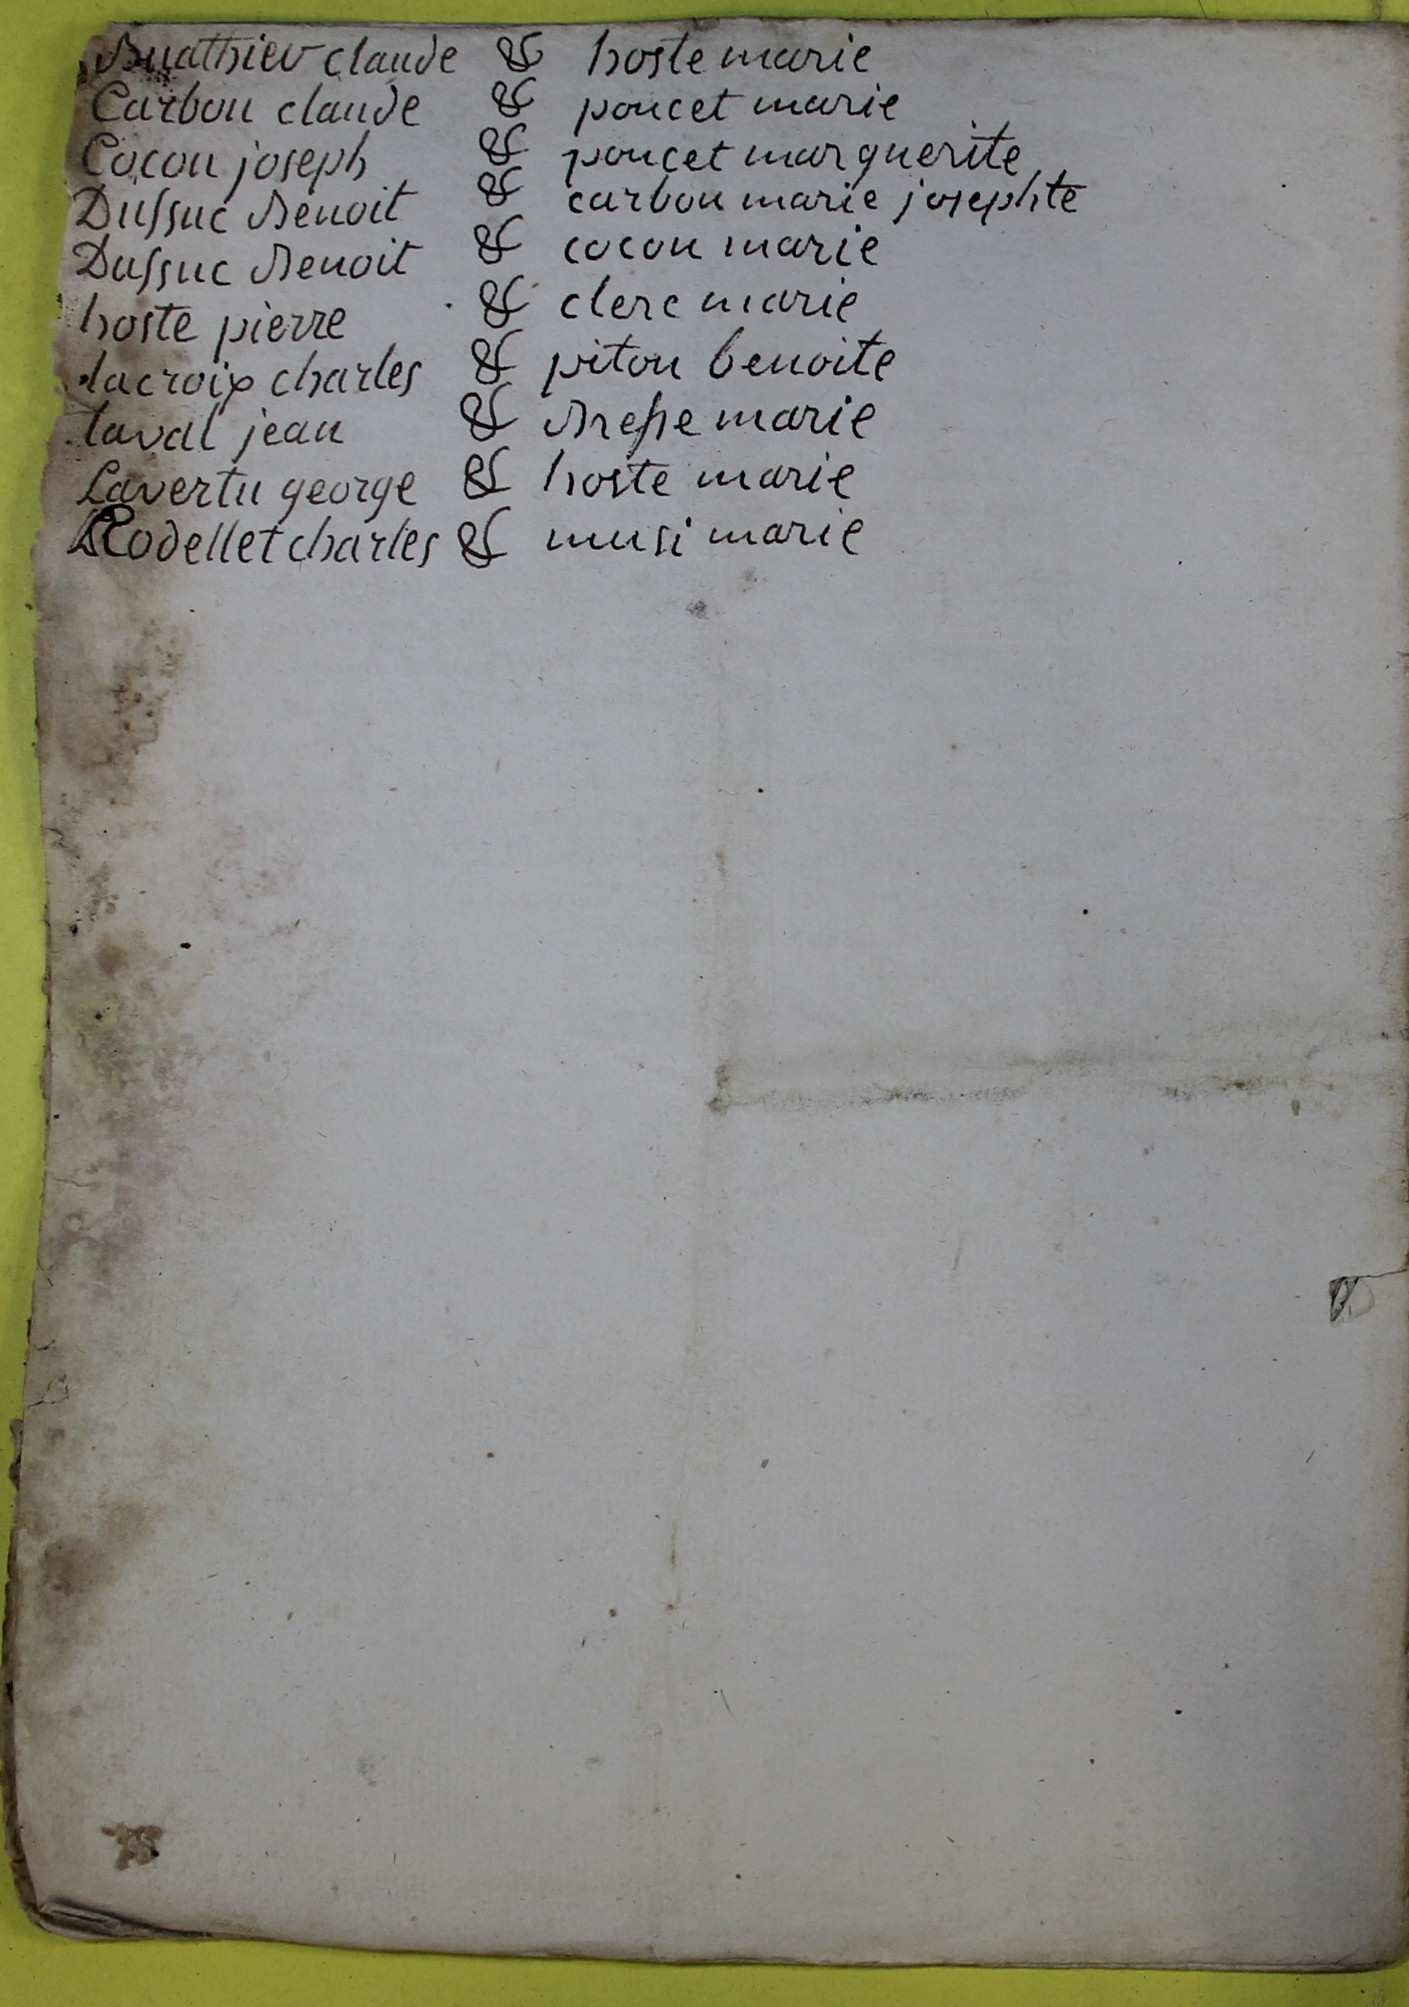 Buathier claude & hoste marie
Carbon claude & poncet marie
Cocon joseph & poncet marguerite
Dussuc Benoit & carbon marie josephte
Dussuc Benoit & cocon marie
hoste pierre & clerc marie
lacroix charles & piton benoite
laval jean & Bresse marie
Lavertu george & hoste marie
Rodellet charles & musi marie